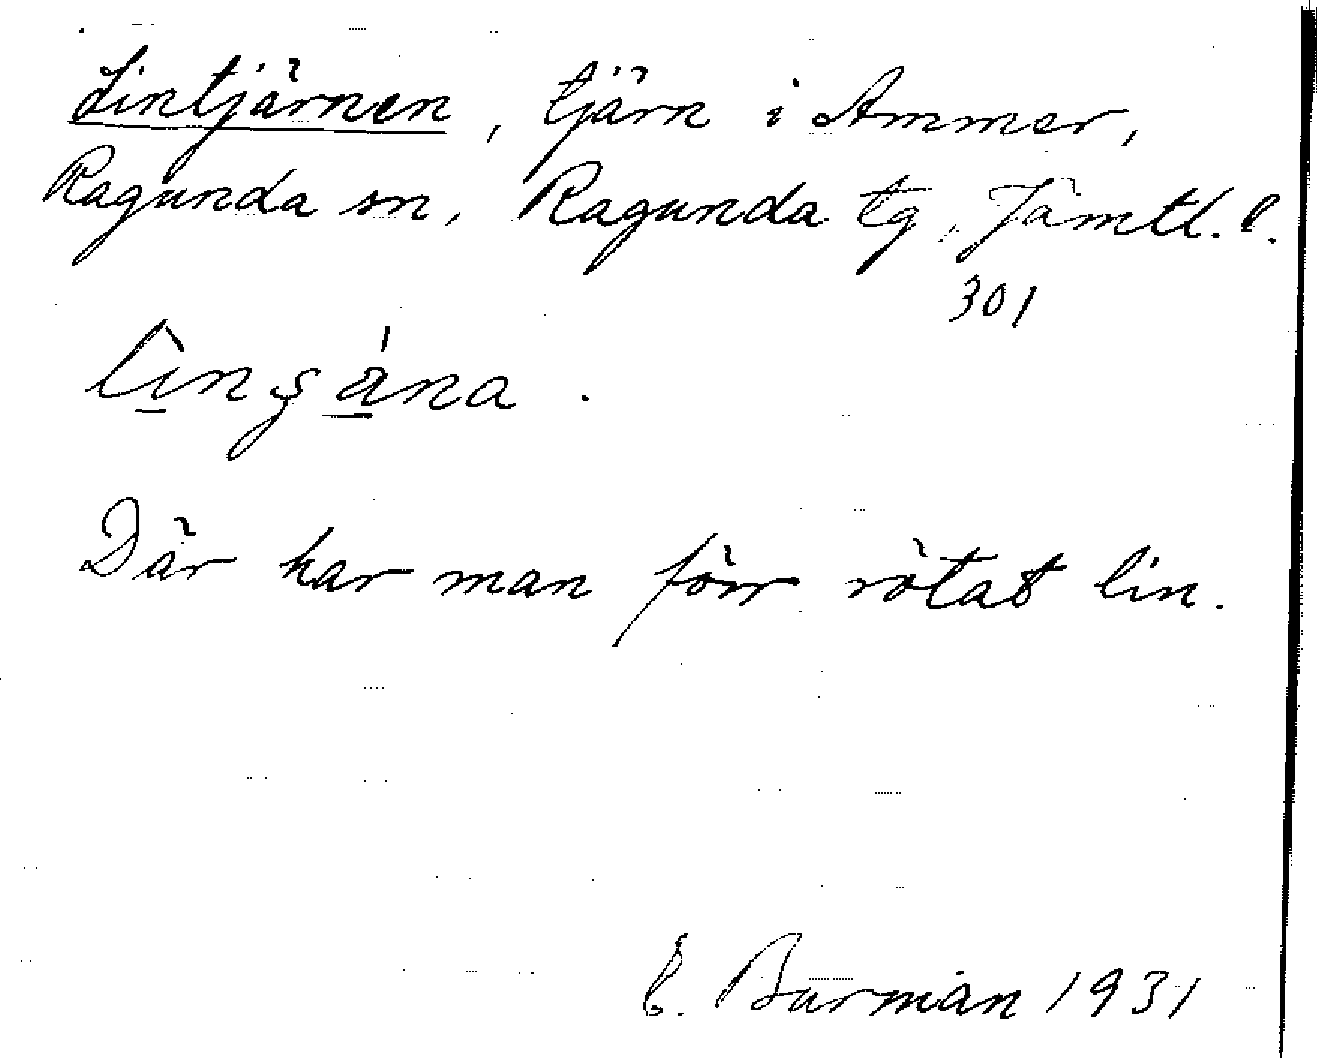 Lintjärnen, tjärn i Ammer,
Ragunda sn, Ragunda tg, Jämtl. l.
301
Där har man förr rötat lin.
E. Burman 1931